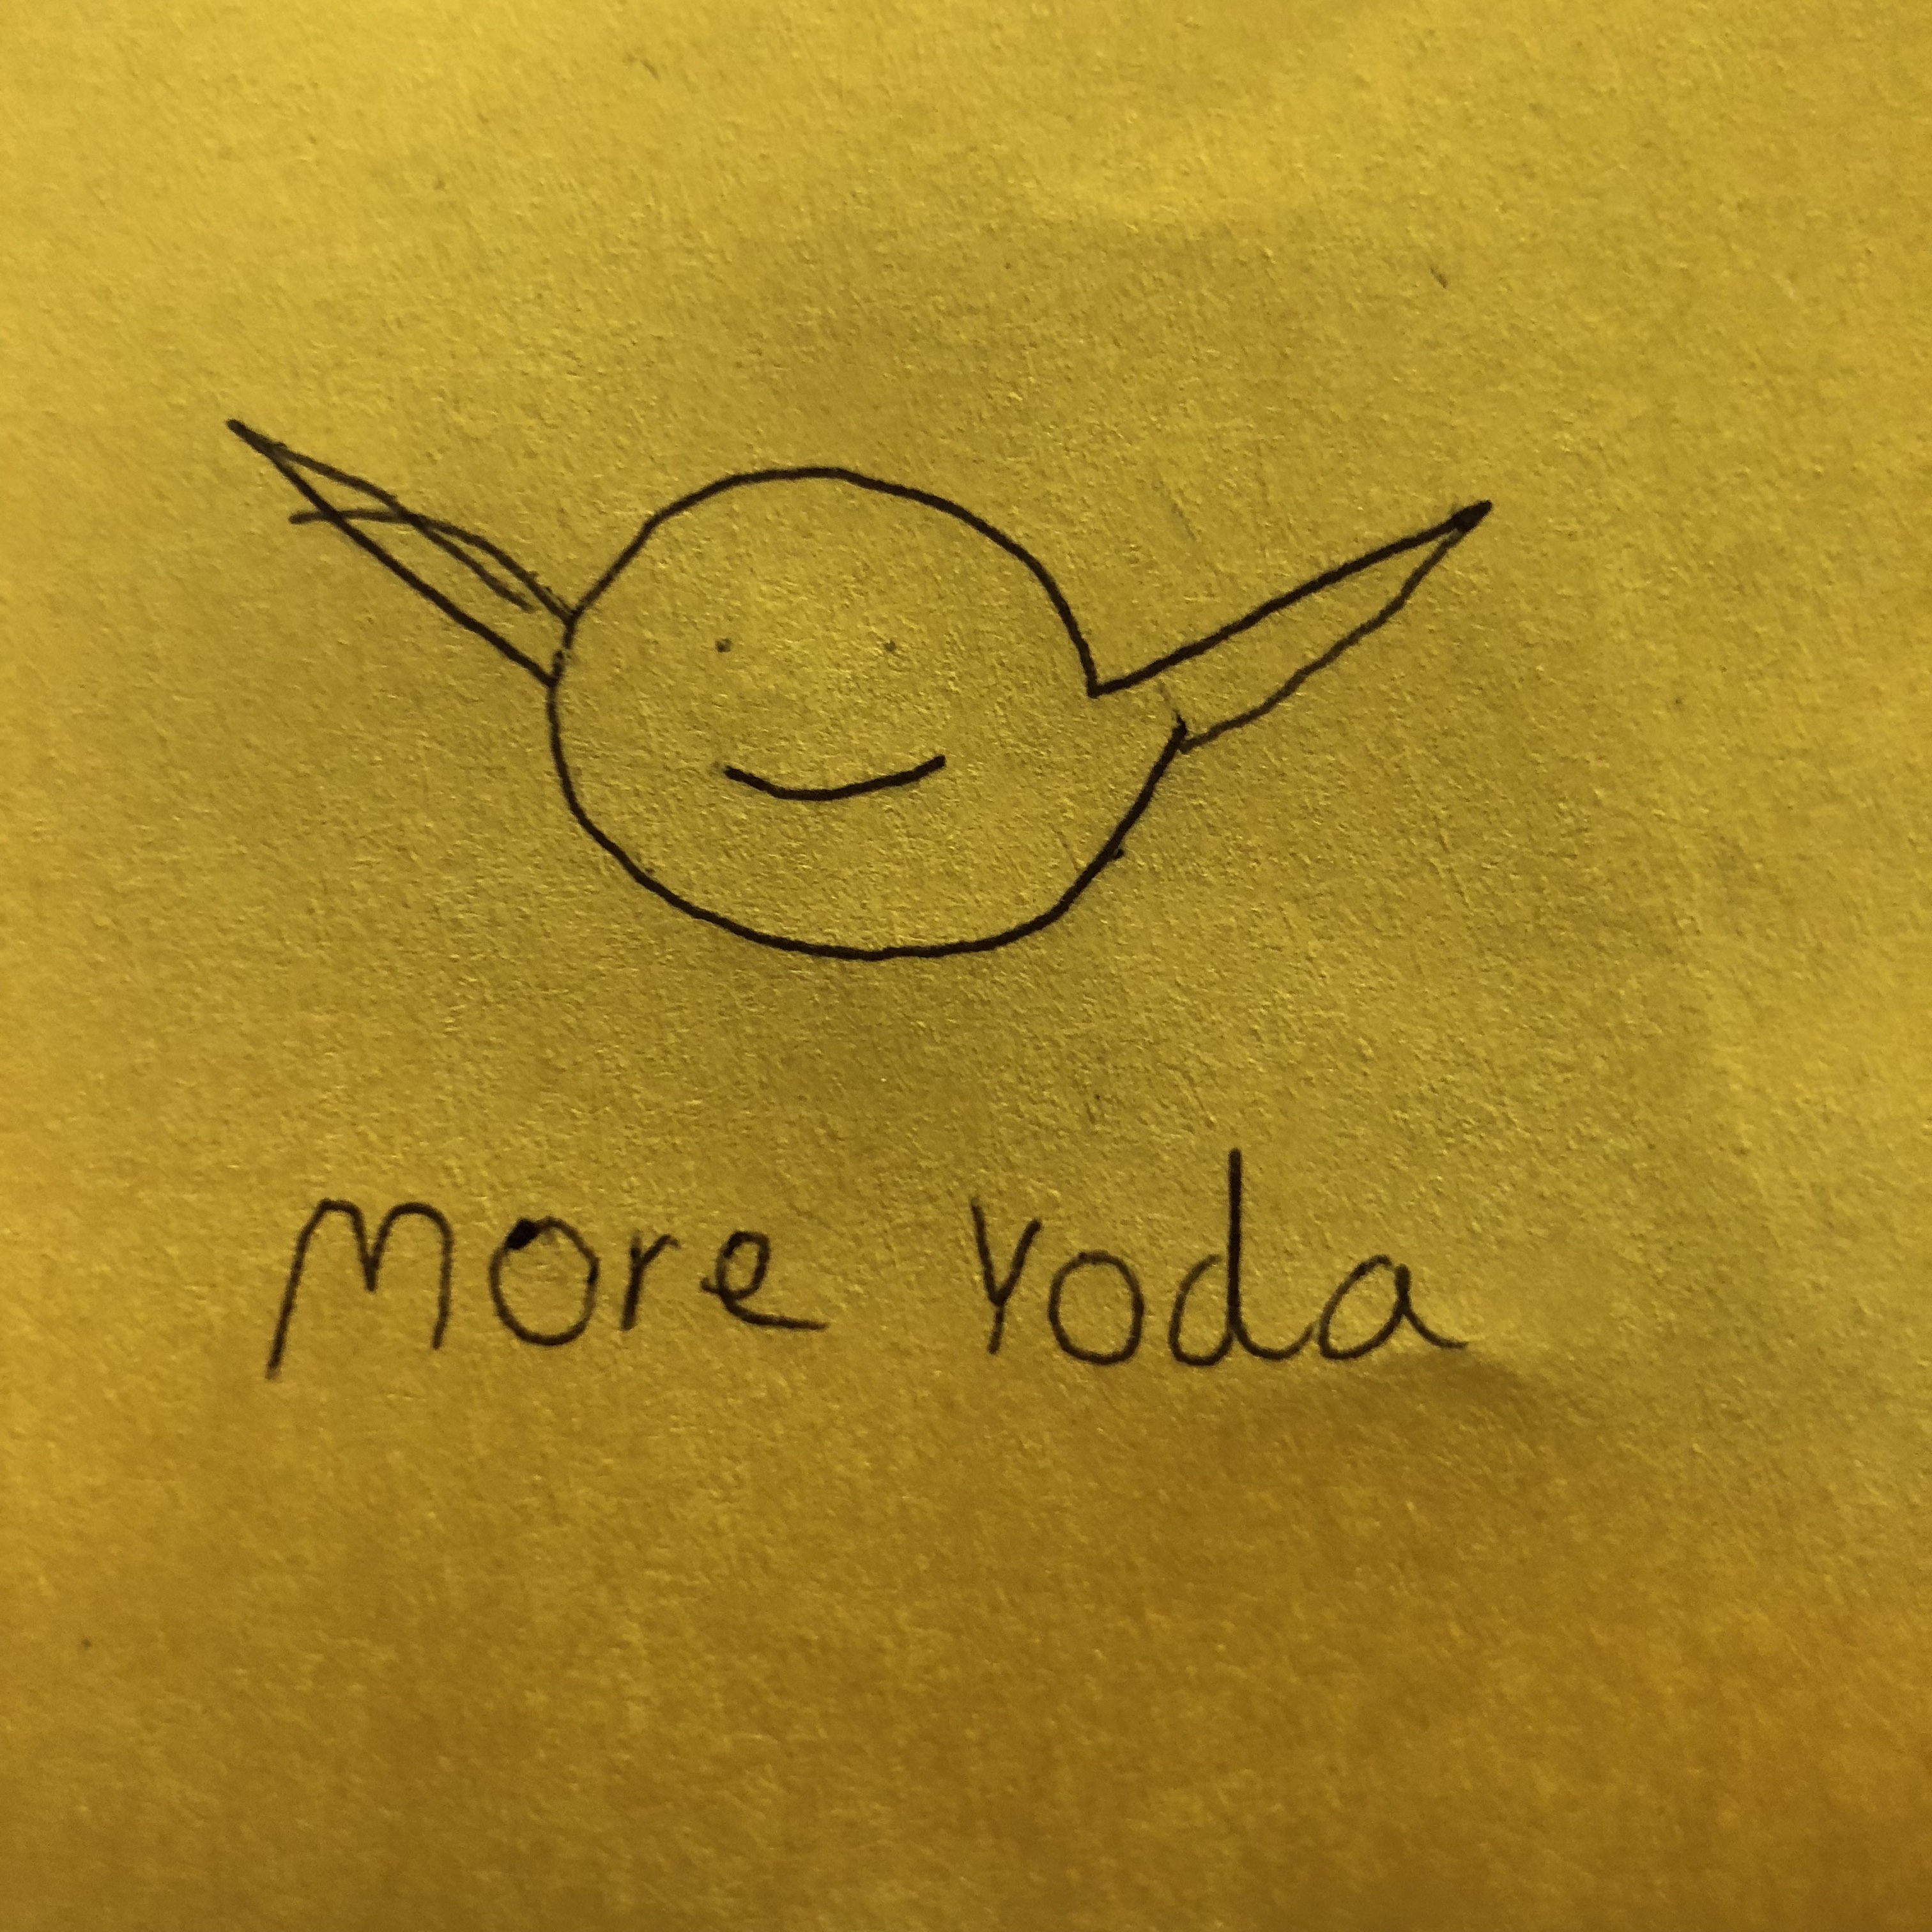 more Yoda